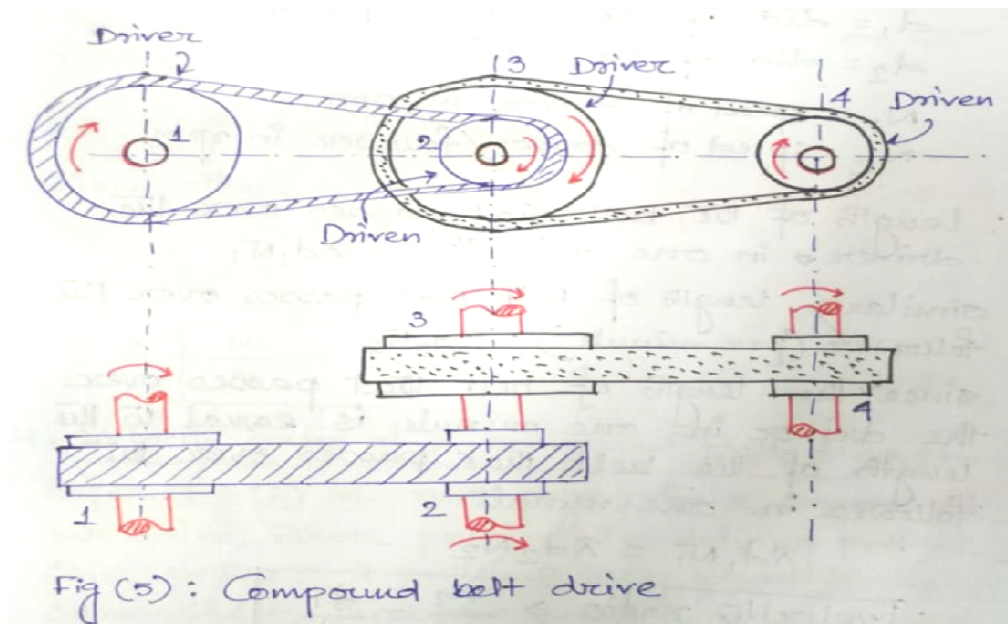 Driver
3
Driver
4
Driven
1
2
Driven
3
4
1
2
Fig (5): Compound belt drive